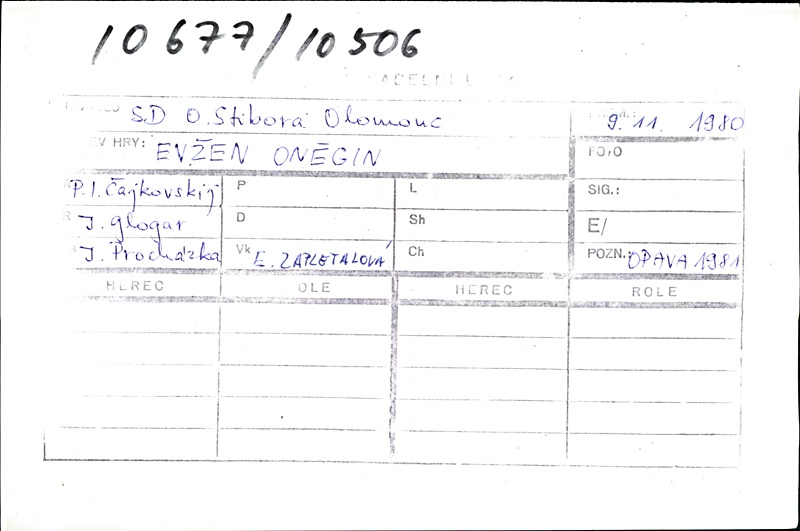 10 677/10 506
S.D O. Stibora Olomouc 9. 11. 1980
EV HRY: EVŽEN ONĚGIN FOTO
P. I. Čajkovskij P L SIG.:
J. Glogar D Sh E/
J. Procházka Vk E. ZAPLETALOVÁ Ch POZN.: OPAVA 1981
HEREC OLE HEREC ROLE